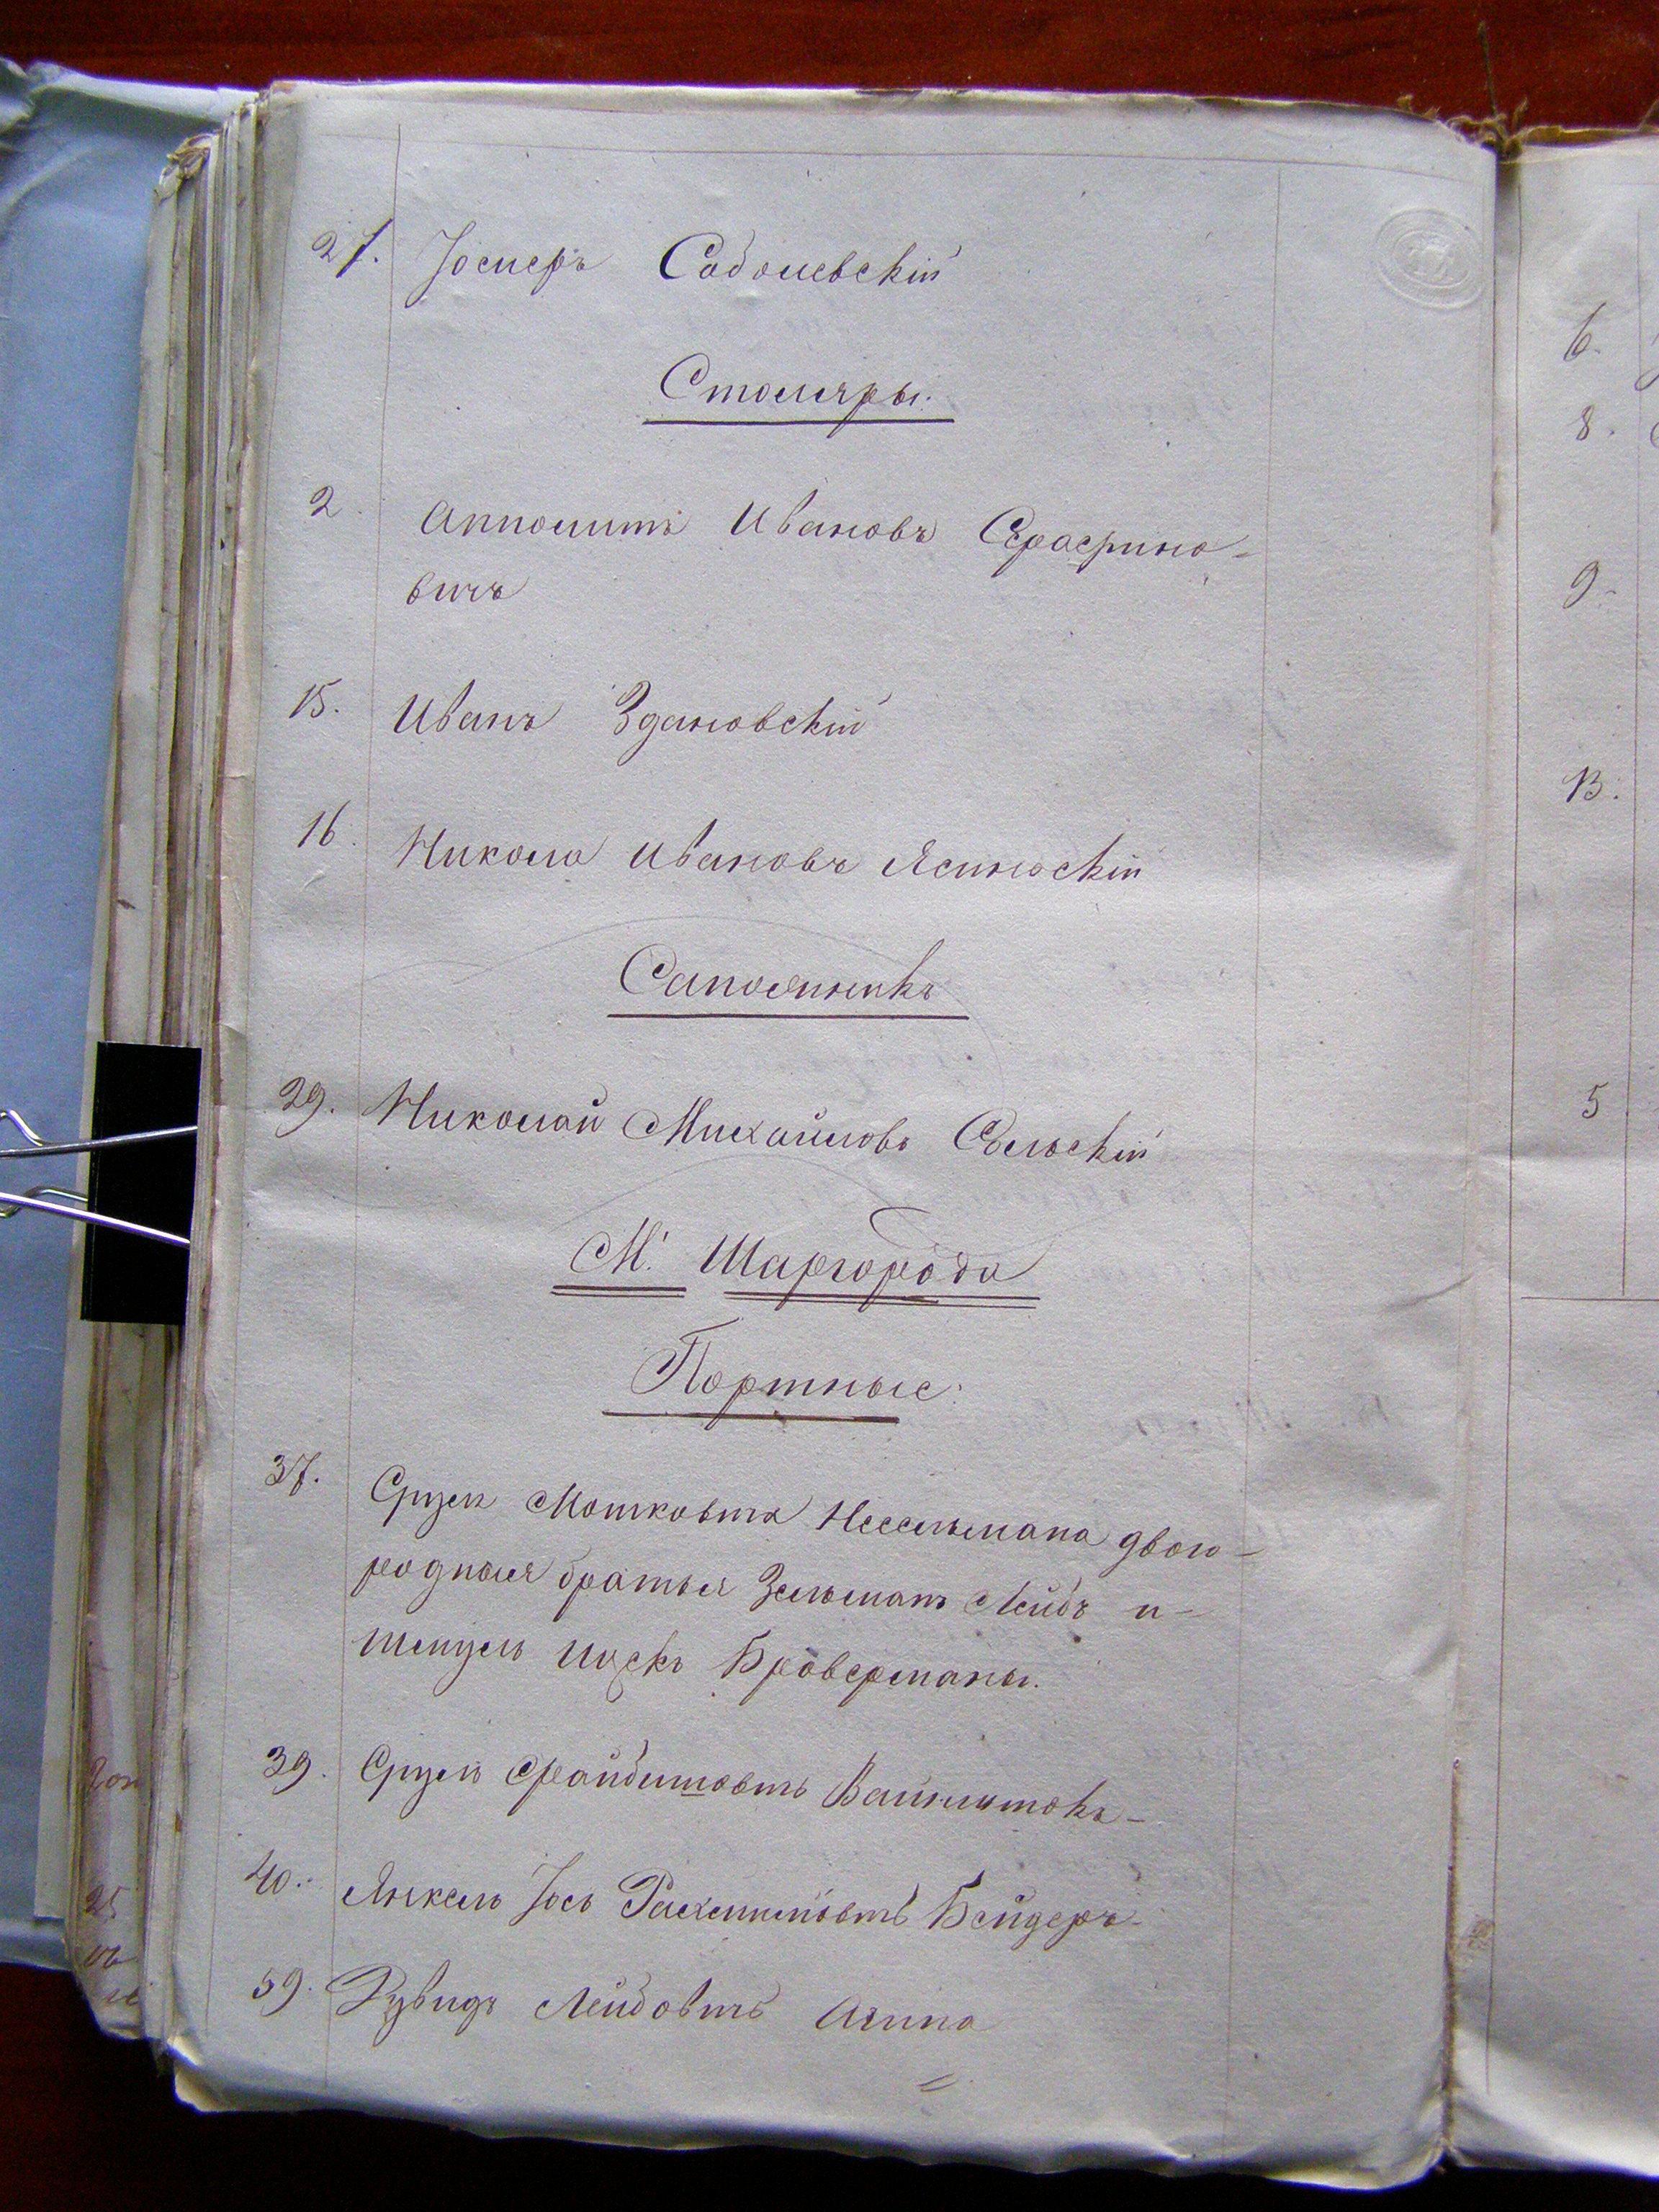 27. Іосиеръ Соболевскій
Столяры.
2. Апполитъ Ивановъ Серафино-
вичъ
15. Иванъ Здановскій
16. Никола Ивановъ Ясинскій
Сапожникъ
29. Николай Михайловъ Сельскій
М. Шаргорода
Портные:
37. Сруля Мошковъ Нессельмана двою-
родныя братья Зельманъ Лейбъ и
Шмуль Ицекъ Броверманы.
39. Сруль Файбишовъ Вайнштокъ
40. Янкель Іось Рахмиловъ Бендеръ
59. Рувидъ Лейбовъ
6.
8.
9.
13.
5